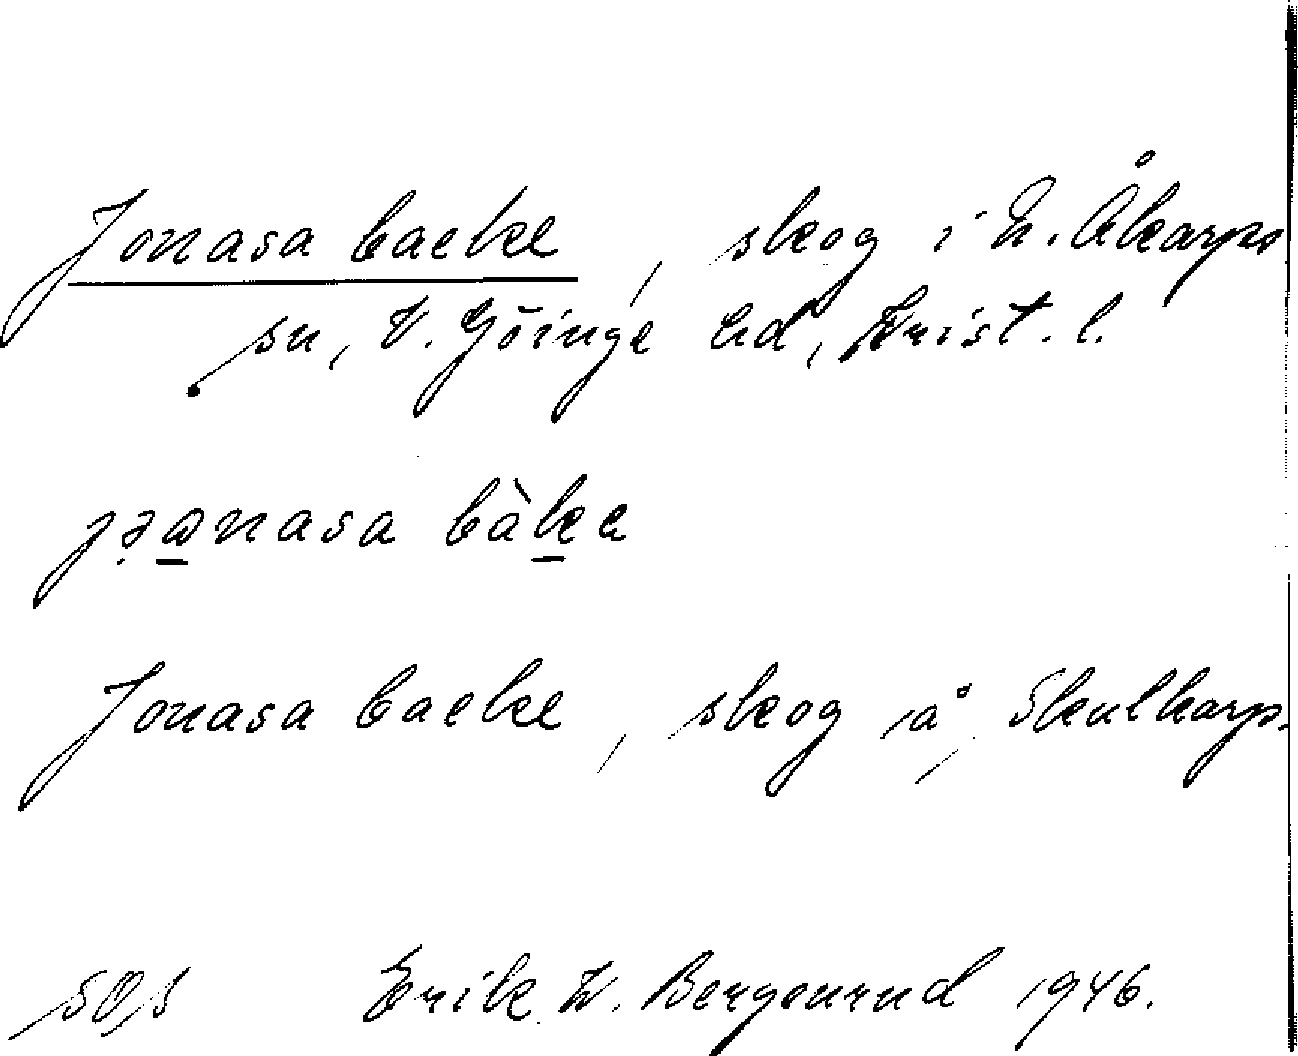 Jonasa backe, skog i N. Åkarps
sn, V. Göinge hd, Krist. l.
bàke
Jonasa backe, skog å Skulkarps.
Erik W. Bergenrud 1946.